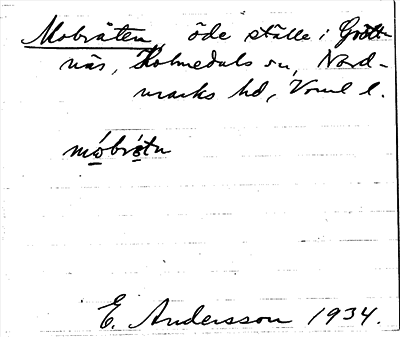 Mobråten, öde ställe i Gröttn
näs, Holmedals sn, Nord-
marks hd, Vrml l.
móbrótn
E. Andersson 1934.